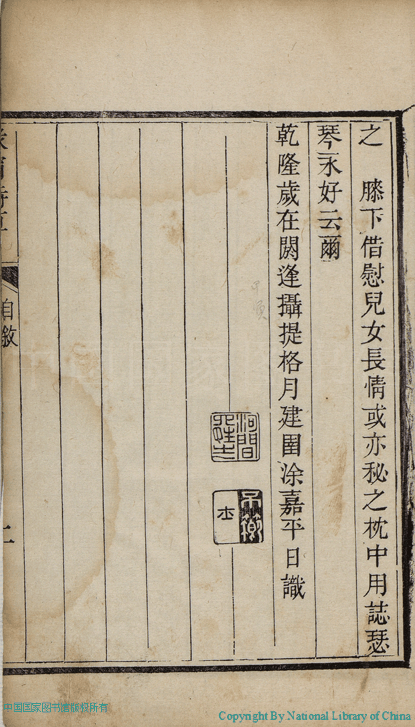 之　膝下借慰兒女長情或亦秘之枕中用誌瑟
琴永好云爾
乾隆歲在閼逢攝提格月建圉涂嘉平日識
河間
自敘
二
中国国家图书馆版权所有
Copyright By National Library of China